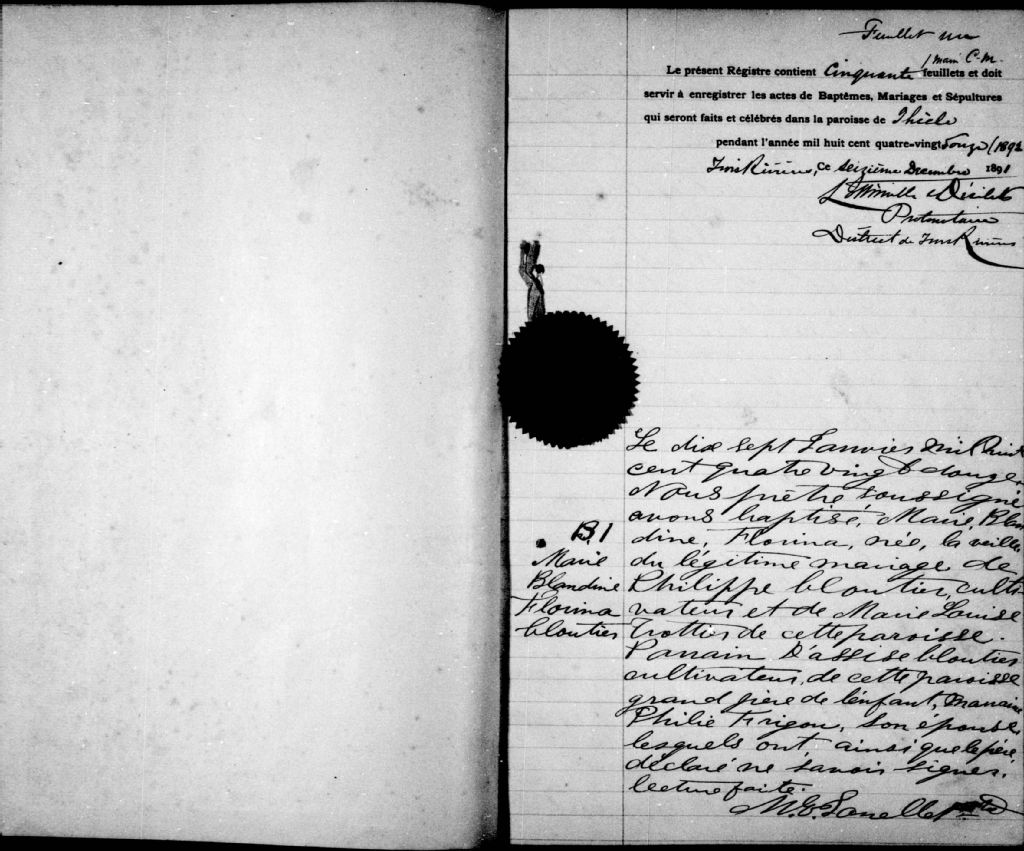 Feuillet un
1 main C-M.
Le présent Régistre contient Cinquante feuillets et doit
servir à enregistrer les actes de Baptêmes, Mariages et Sépultures
qui seront faits et célébrés dans la paroisse de Thècle
pendant l'année mil huit cent quatre-vingt douze (1892
Trois Rivières, Ce Seizième Decembre 1891
Désilets
Protonotaire
District de Trois Rivières
Le dix sept Janvier mil huit
cent quatre vingt douze.
Nous prêtre soussigné
avons baptisé, Marie, Blan
dine, Florina, née, la veille
du légitime mariage de
Philippe Cloutier, culti
vateur et de Marie Louise
Trottier de cette paroisse.
Parrain D'assise Cloutier
cultivateur, de cette paroisse
grand père de l'enfant, marraine
Philie Frigon, son épouse,
lesquels ont, ainsi que le père,
déclaré ne savoir signer.
lecture faite.
B. 1
Marie
Blandine
Florina
Cloutier